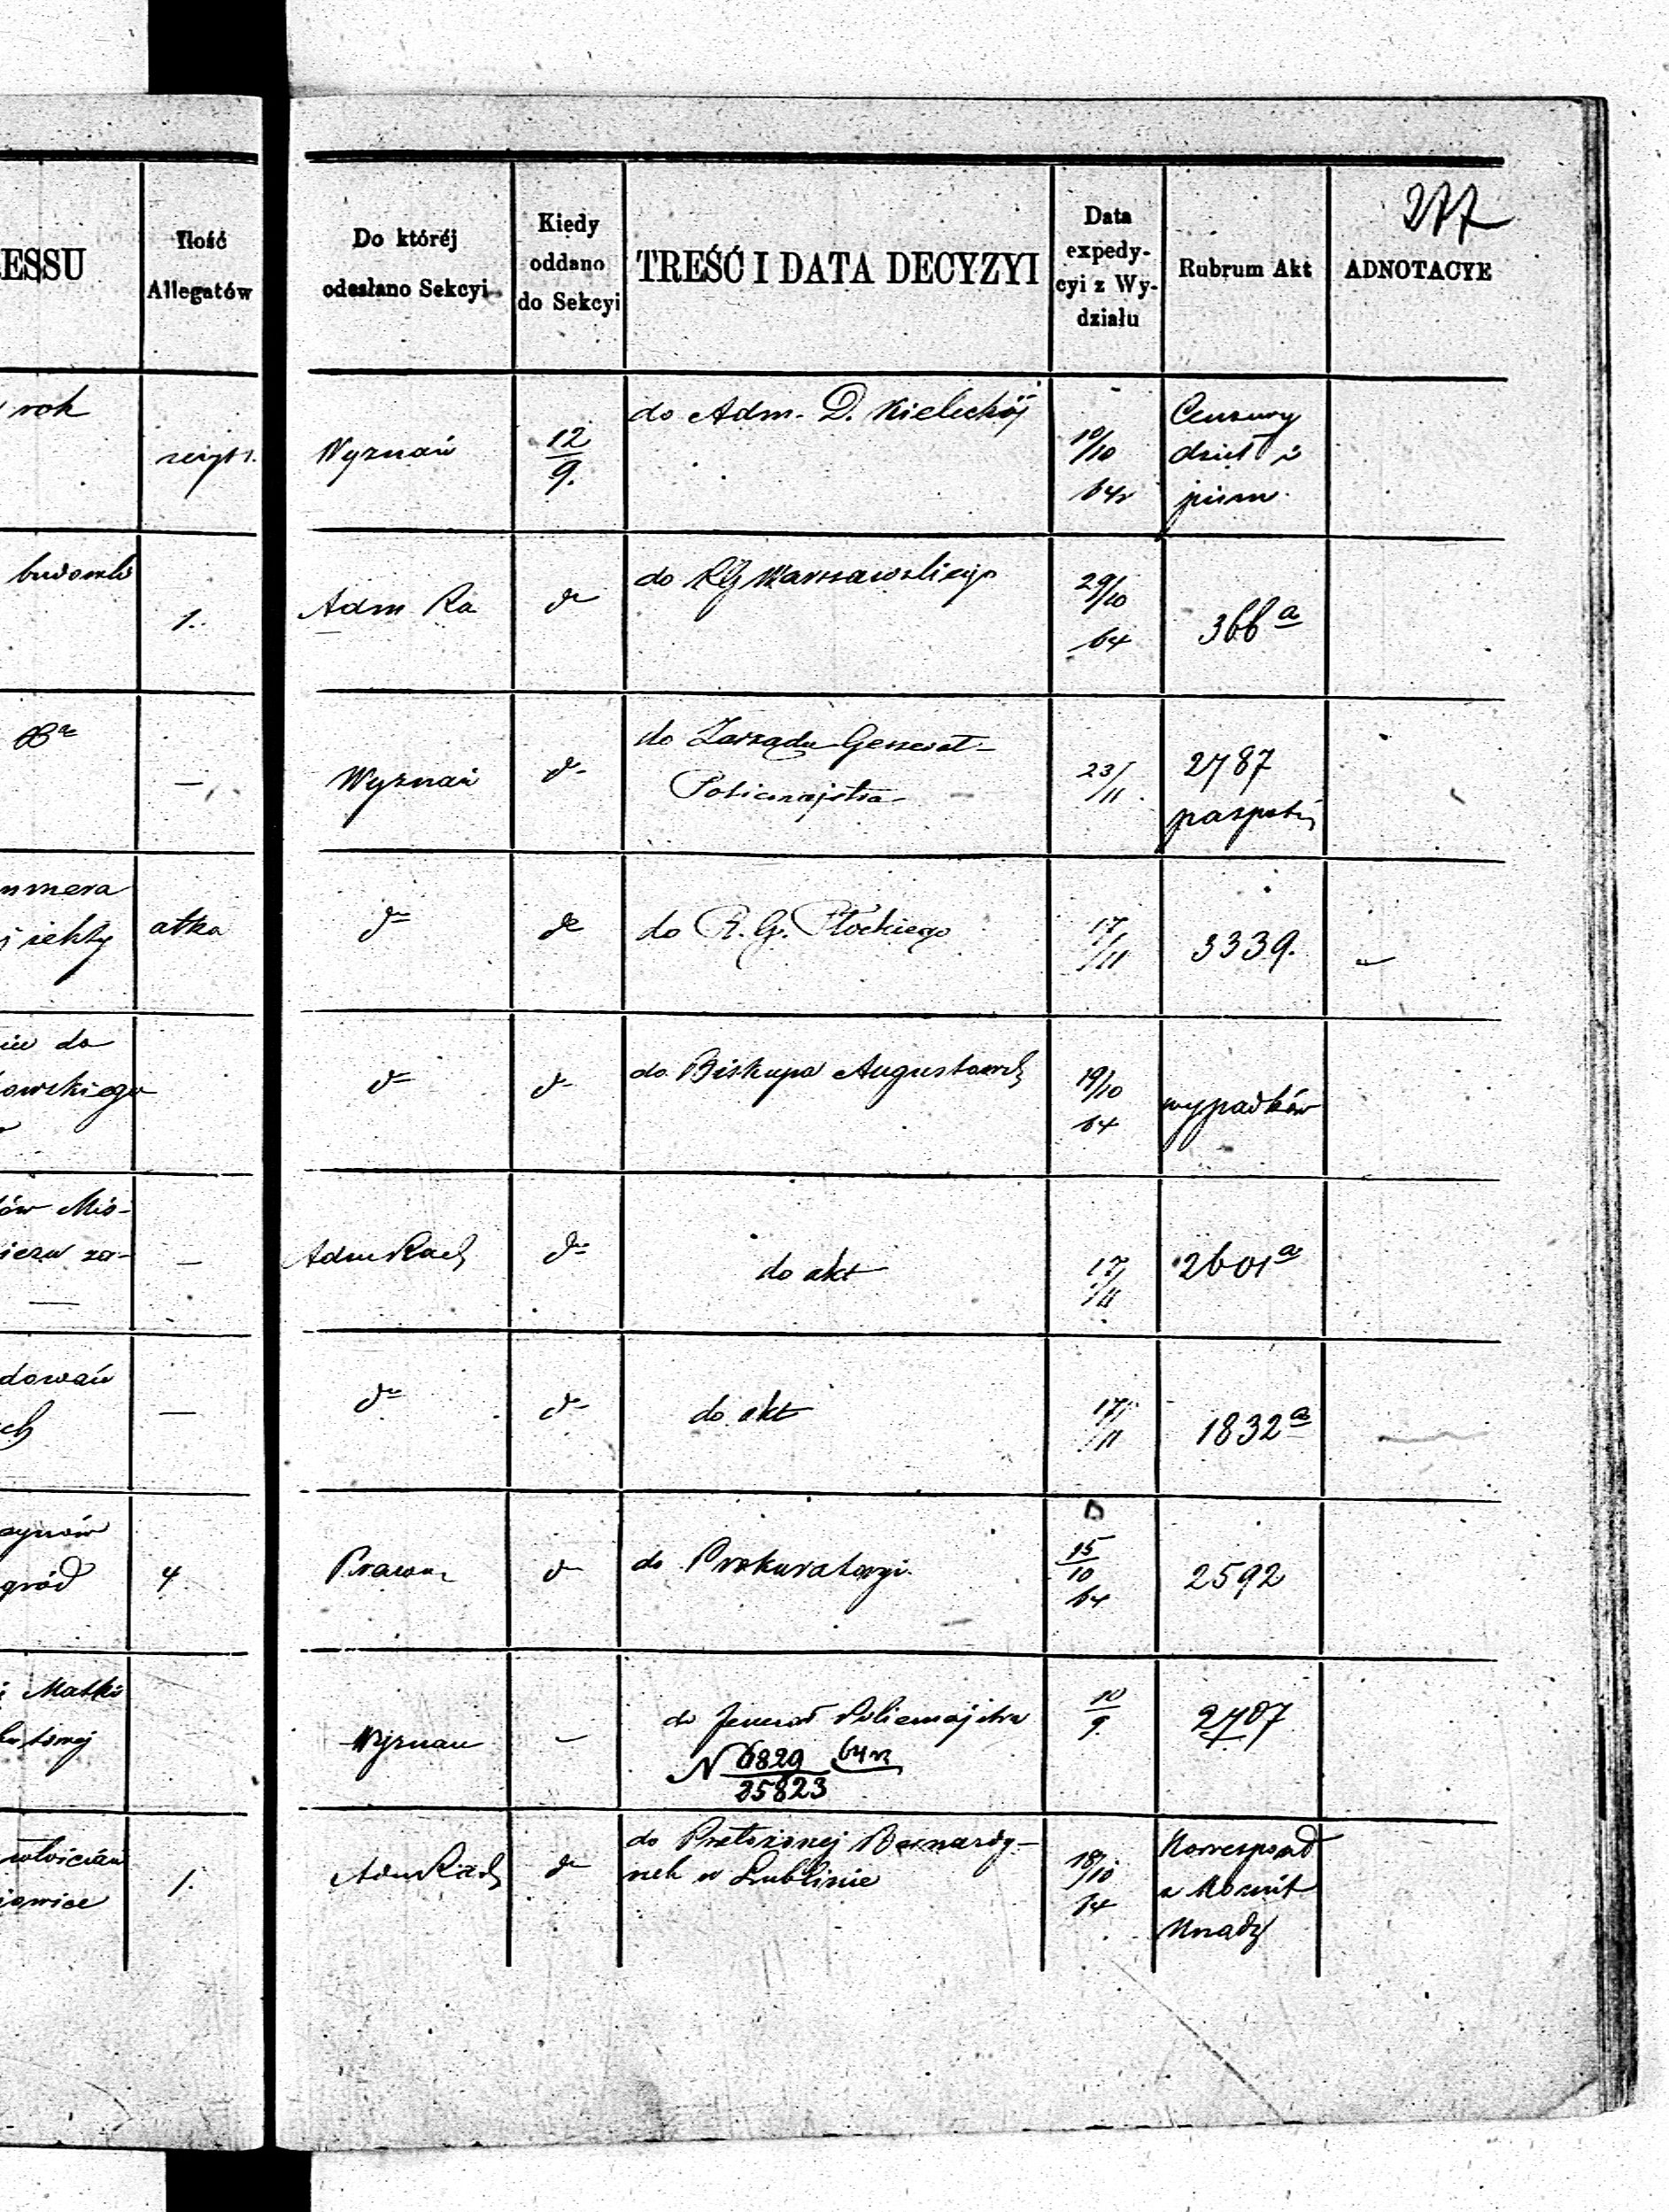 277
ESSU
Ilość
Allegatów
Do któréj
odesłano Sekcyi
Kiedy
oddano
do Sekcyi
TREŚĆ I DATA DECYZYI
Data
expedy-
cyi z Wy-
działu
Rubrum Akt
ADNOTACYE
rok
Wyznań
12/9.
do Adm. D. Kieleckiéj
10/10
64r
Cenzury
dzieł i
pism.
budowli
1.
Adm Ra
do
do RG Warszawskiego
29/10
64
366 a
—
Wyznań
do
do Zarządu Generał-
Policmajstra
23/11
2787
paszporty
mmera
atka
do
do
do R. G. Płockiego
17/11
3339.
do
owskiego
do
do
do Biskupa Augustowsk
19/10
64
wypadków
ów Mis-
za-
—
Adm Rach
do
do akt
17/11
2601 a
dowań
ch
—
do
do
do akt
17/11
1832 a
gród
4
Prawn
do
do Prokuratoryi
15/10
64
2592
Matki
Wyznań
—
do Jenerał Policmajstra
N 6829/25823 64r
10/9
2707
1.
Adm Rach
do
do Przełożonej Bernardy-
nek w Lublinie
18/10
64
Korrespond
z Komit
Urządz